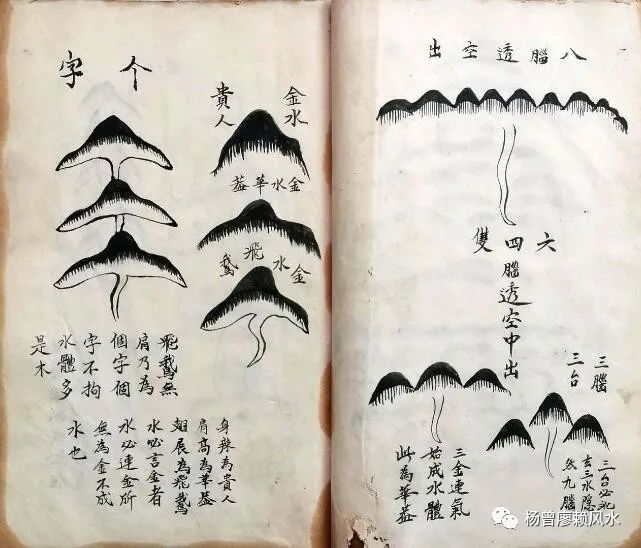 八腦透空出
六四雙
腦透空中出
三腦
三台
三台必
三水隐
九腦
三金連氣
始成水體
此為華葢
金水
貴人
金水華葢
金水飛鵞
个字
飛鵞無
肩乃為
個字個
字不拘
水體多
是木
身為貴人
肩高為華葢
翅展為飛鵞
水必言金者
水必連金所
無為金不成
水也
杨曾廖赖风水